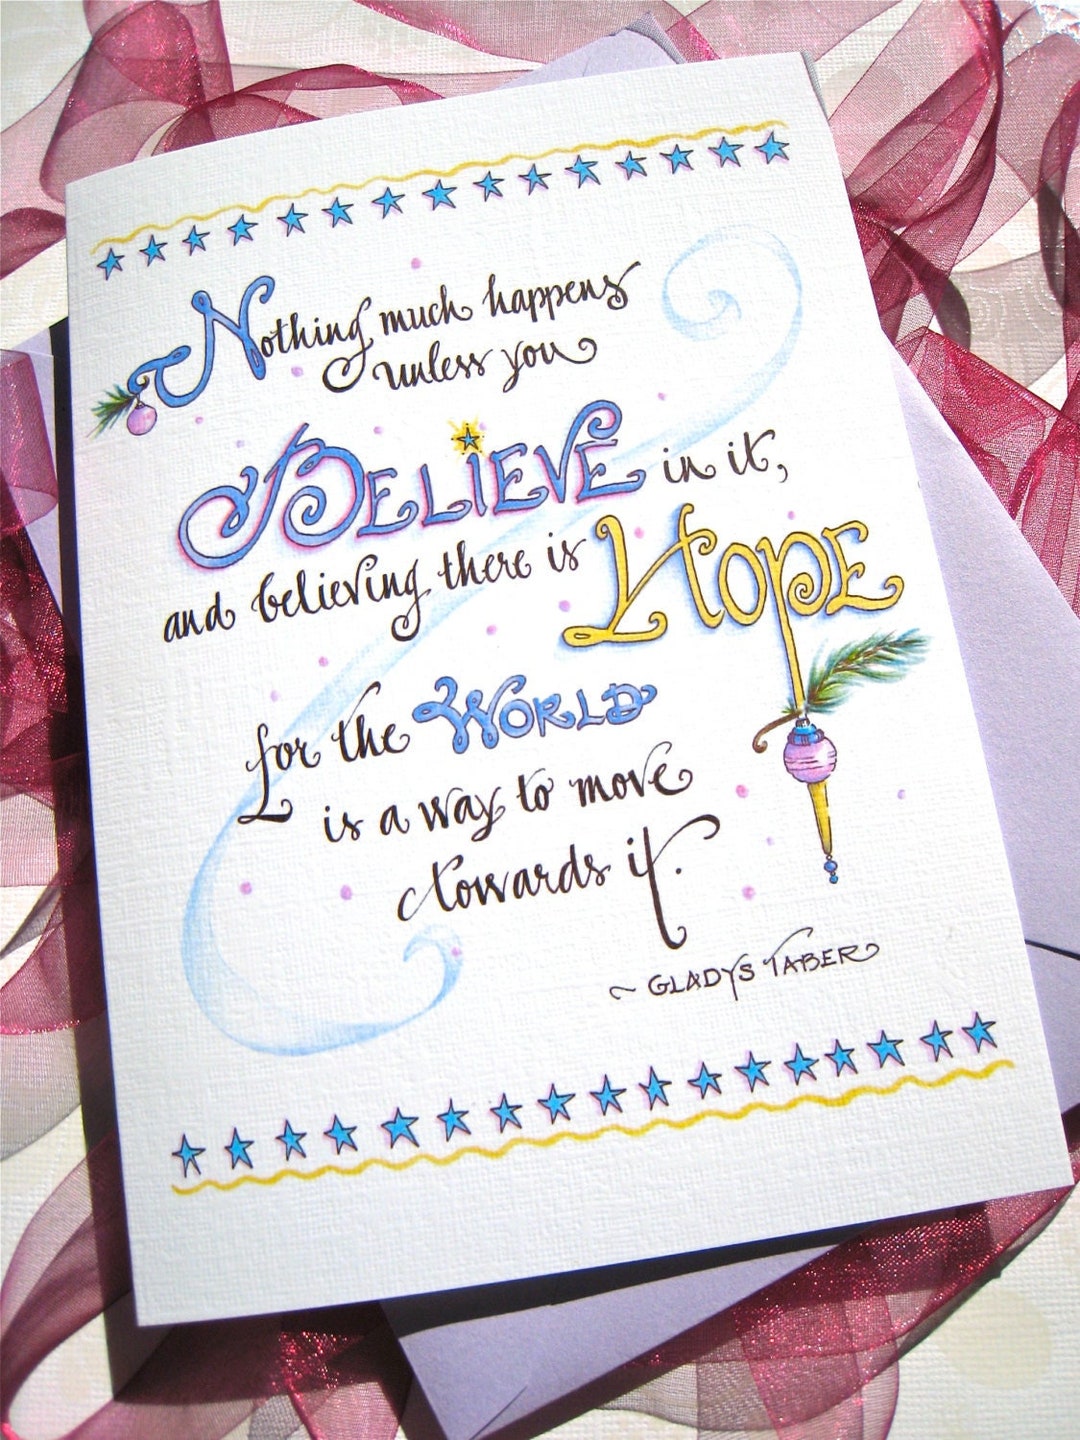 Nothing much happens
unless you
BELIEVE in it,
and believing there is HOPE
for the WORLD
is a way to move
towards it.
~ GLADYS TABER